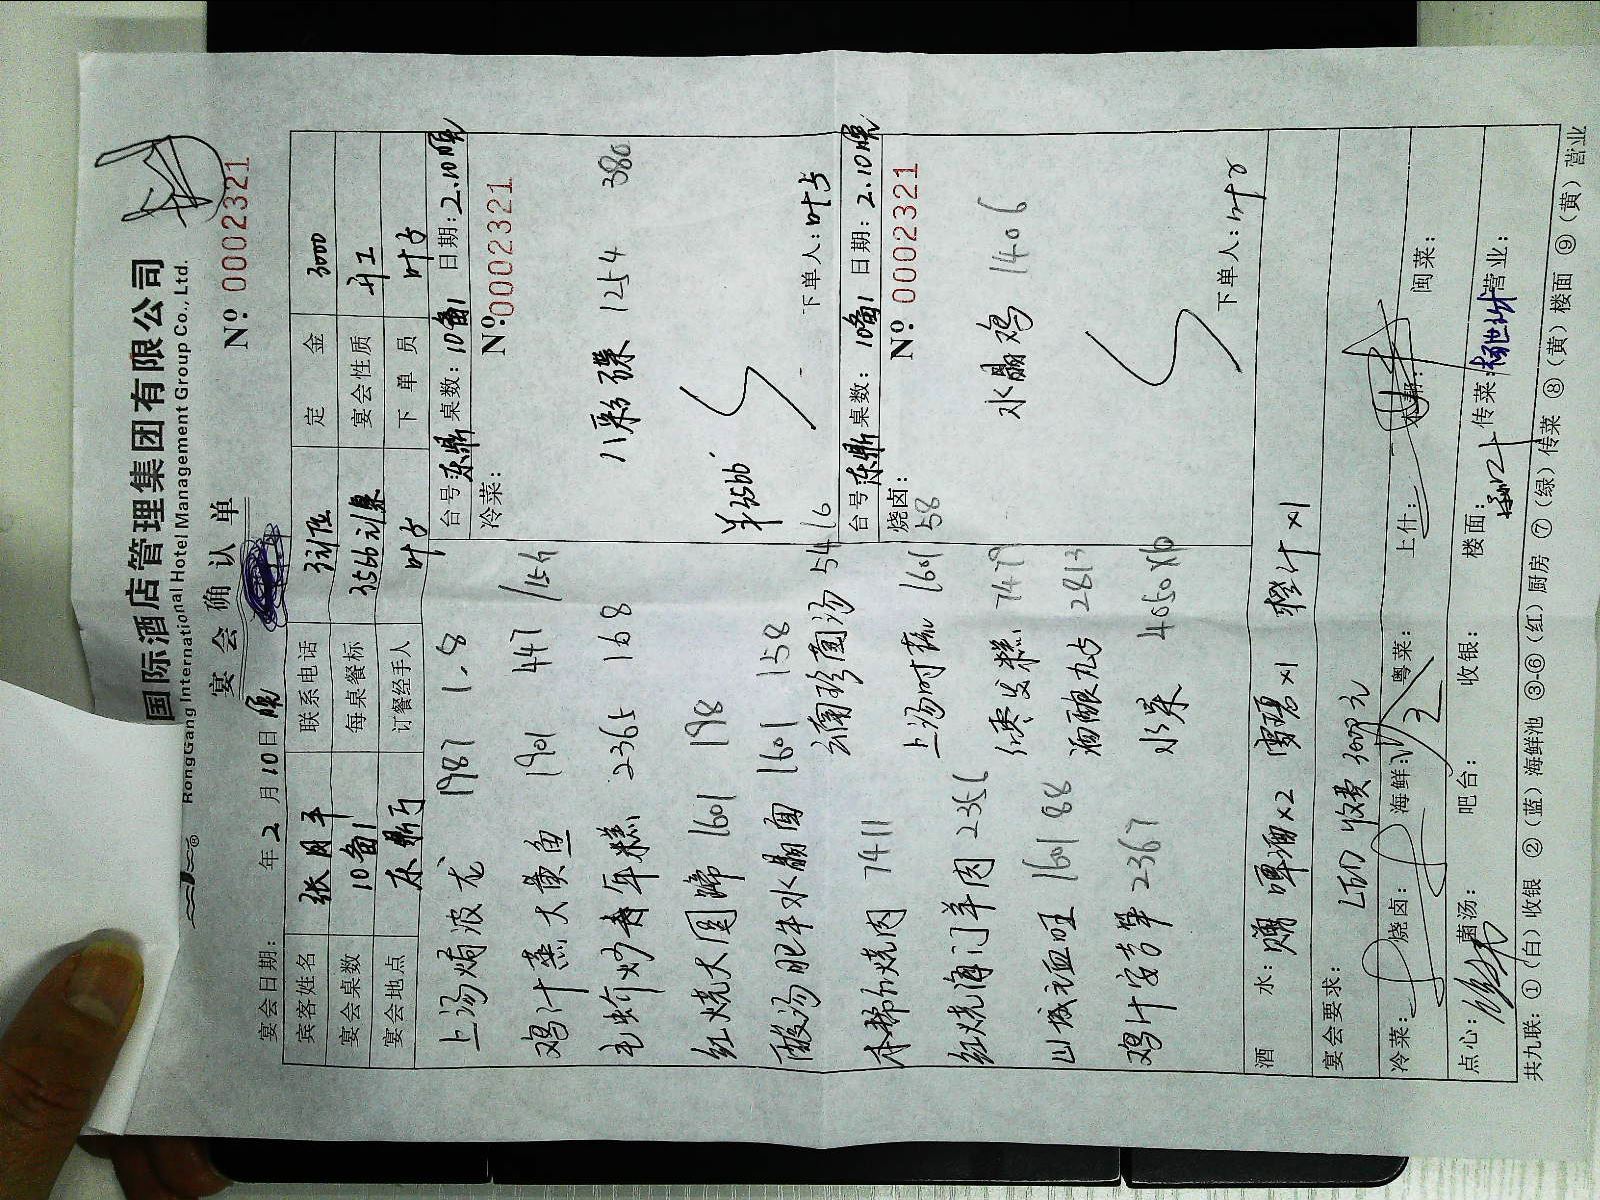 国际酒店管理集团有限公司
RongGang International Hotel Management Group Co., Ltd.
宴会确认单
Nº 0002321
宴会日期: 年2月10日晚
宾客姓名 张月平 联系电话 定金 3000
宴会桌数 10备1 每桌餐标 宴会性质
宴会地点 东鼎厅 订餐经手人 叶占 下单员 叶占
台号 东鼎 桌数: 10备1 日期: 2.10晚
冷菜:
Nº:0002321
八彩碟 1254 380
下单人: 叶占
台号 东鼎 桌数: 10备1 日期: 2.10晚
烧卤:
Nº 0002321
58
水晶鸡 1406
下单人: 叶占
上汤焗波龙 1987 1.8
鸡汁蒸大黄鱼 1901 447
毛蚧炒青年糕 2365 168
红烧大圆蹄 1601 198
酸汤肥牛水晶面 1601 158
云南珍菌汤 5416
烧肉 7411
上汤时蔬 1601
红烧海门羊肉 2356
红枣发糕 7479
山城血旺 1601 88
酒酿丸占 2813
鸡汁安吉笋 2367
水果 4050X10
酒水: 赠 啤酒x2 雪碧x1 橙汁x1
宴会要求: LED 收费 300元
冷菜: 烧卤: 海鲜: 粤菜: 上什: 本帮: 闽菜:
点心: 菌汤: 吧台: 收银: 楼面: 传菜: 营业:
共九联: ①(白)收银 ②(蓝)海鲜池 ③-⑥(红)厨房 ⑦(绿)传菜 ⑧(黄)楼面 ⑨(黄)营业